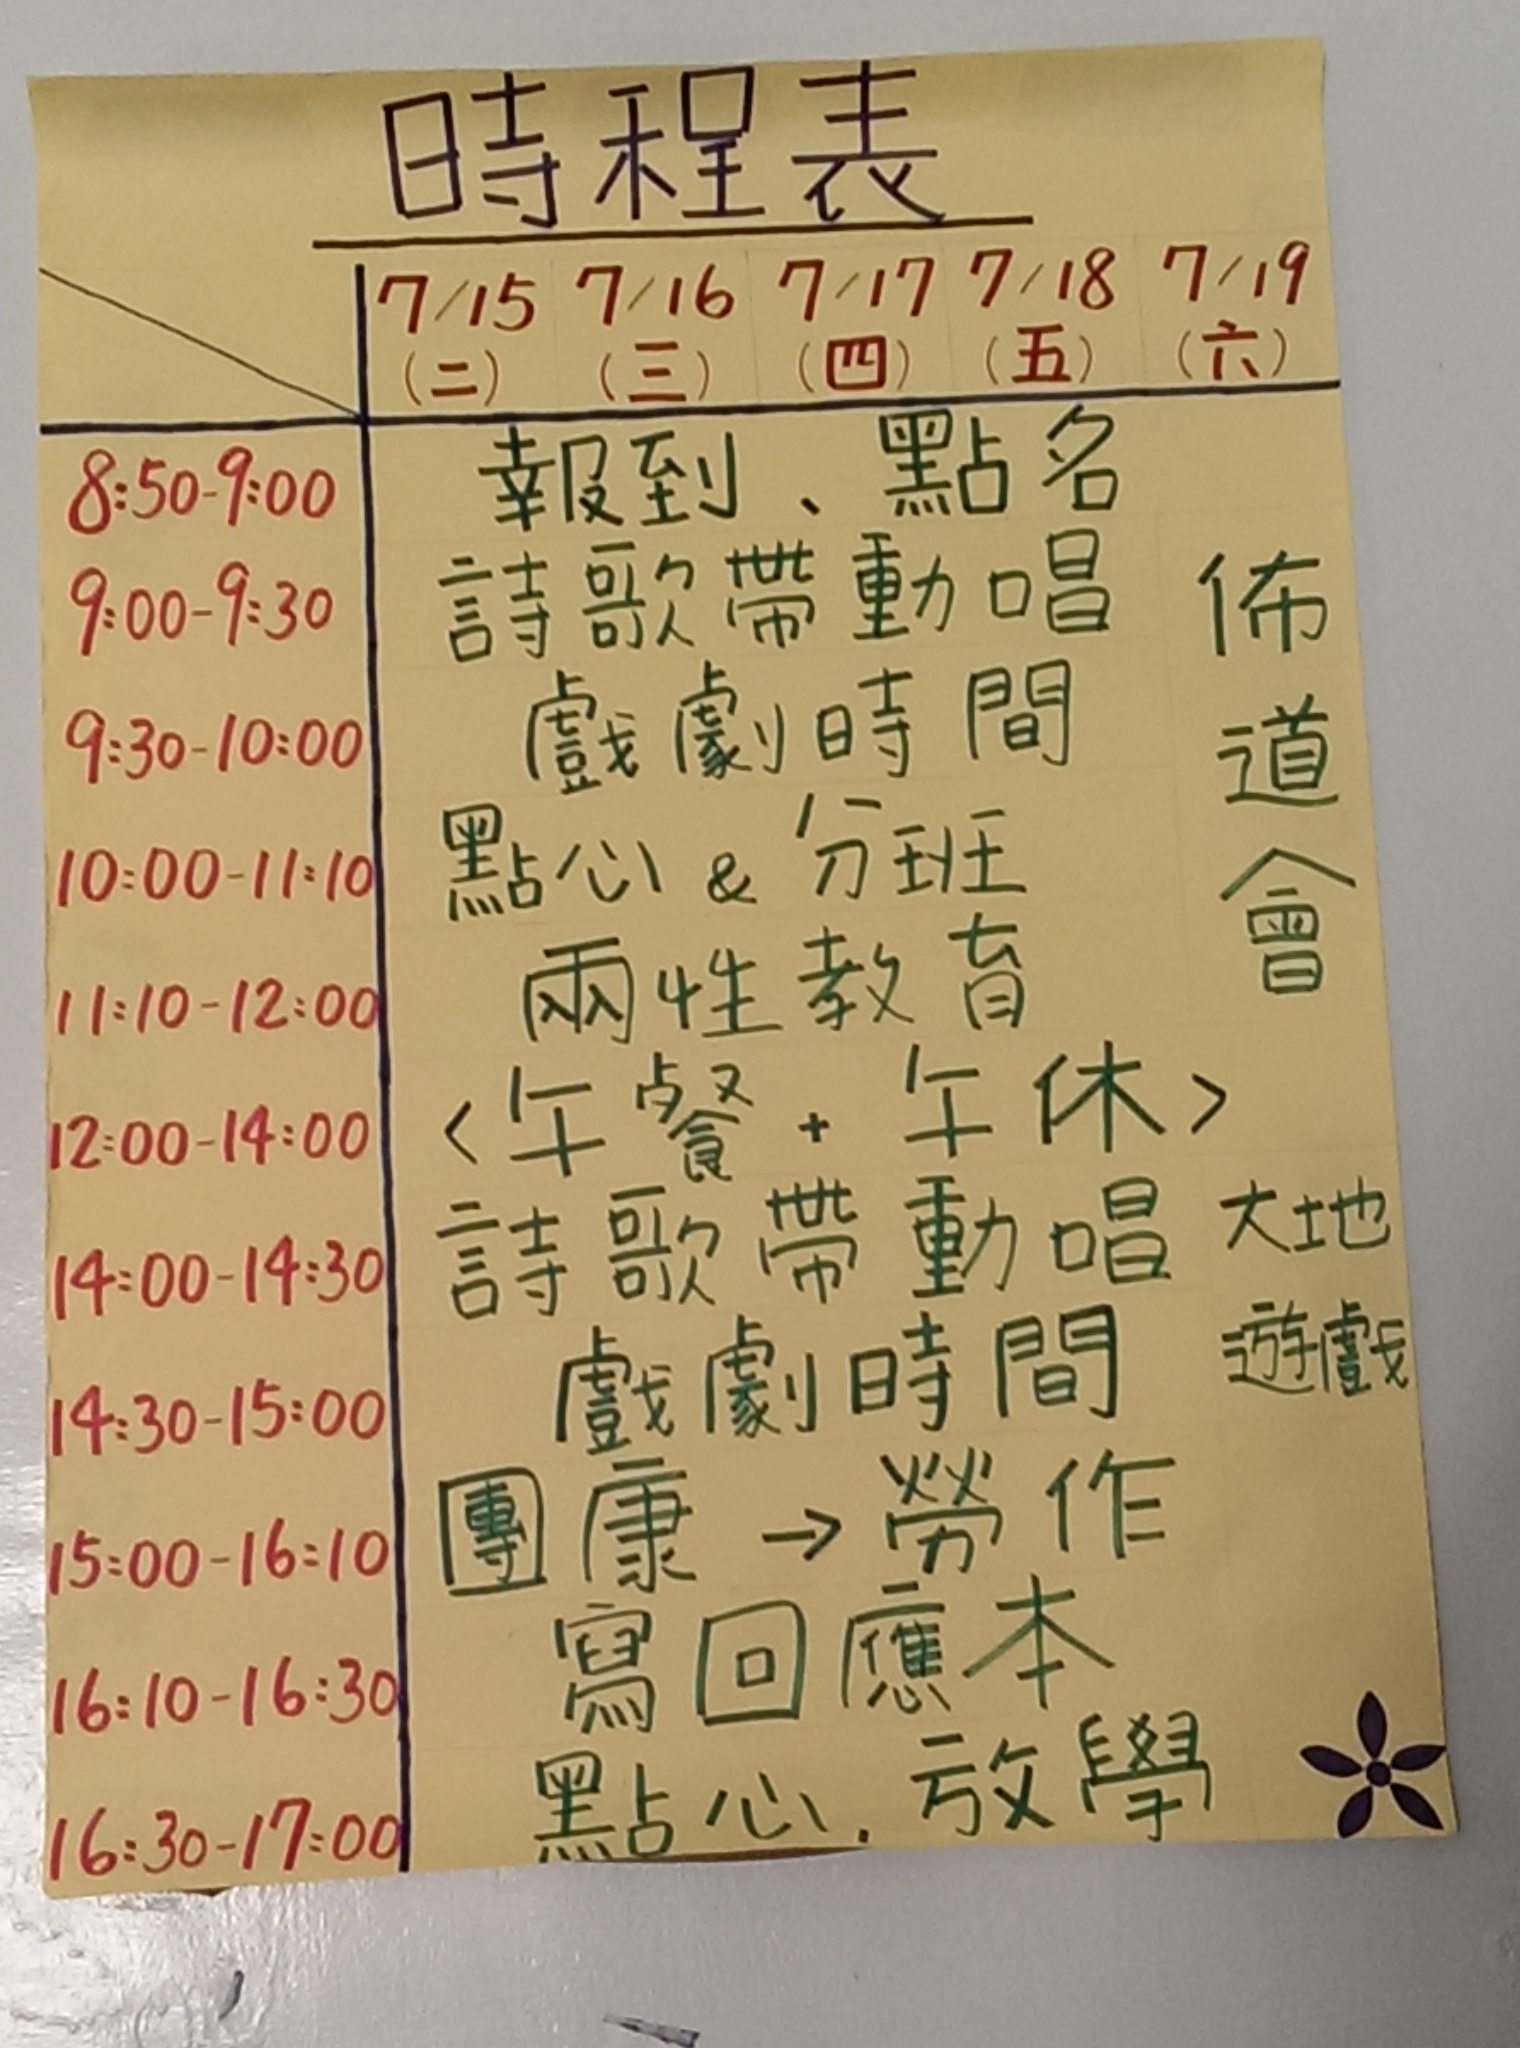 時程表
7/15 7/16 7/17 7/18 7/19
(二) (三) (四) (五) (六)
8:50-9:00 報到、點名
9:00-9:30 詩歌帶動唱
9:30-10:00 戲劇時間
10:00-11:10 點心 & 分班
11:10-12:00 兩性教育
佈道會
12:00-14:00 <午餐 + 午休>
14:00-14:30 詩歌帶動唱
14:30-15:00 戲劇時間
大地
遊戲
15:00-16:10 團康 → 勞作
16:10-16:30 寫回應本
16:30-17:00 點心.放學